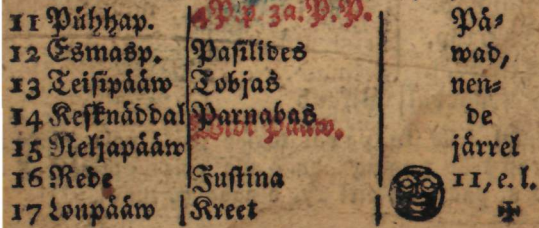 11 Pühhap. 4 P. p 3a. P. P. Pä⸗
12 Esmasp. Pasilides wad,
13 Teisipääw Tobjas nen⸗
14 Kesknäddal Parnabas de
15 Neljapääw Widi Pääw. järrel
16 Rede Justina 11, e. l.
17 Lonpääw Kreet ✠